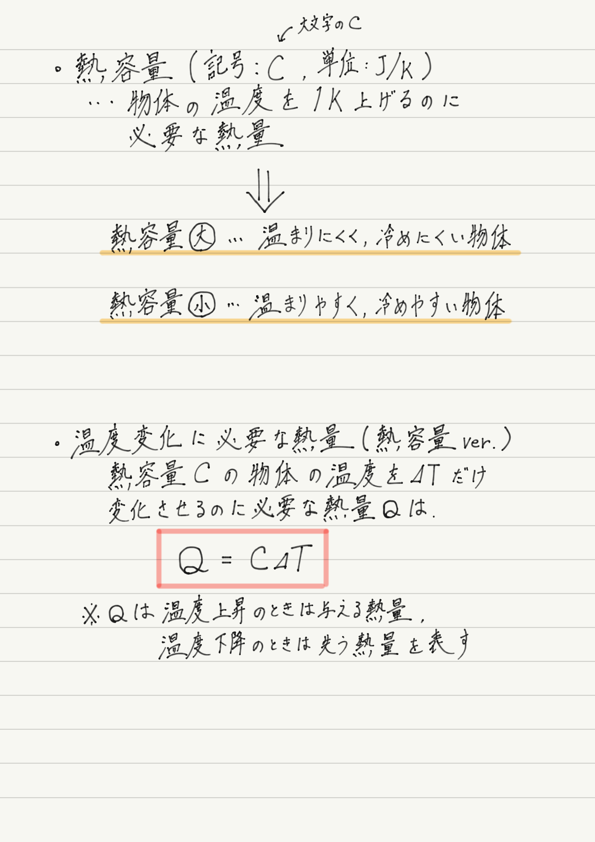 大文字のC
・熱容量(記号:C, 単位:J/K)
… 物体の温度を1K上げるのに
必要な熱量
⇓
熱容量㊛大 … 温まりにくく,冷めにくい物体
熱容量小 … 温まりやすく,冷めやすい物体
・温度変化に必要な熱量(熱容量ver.)
熱容量Cの物体の温度をΔTだけ
変化させるのに必要な熱量Qは.
Q = CΔT
※Qは温度上昇のときは与える熱量,
温度下降のときは失う熱量を表す